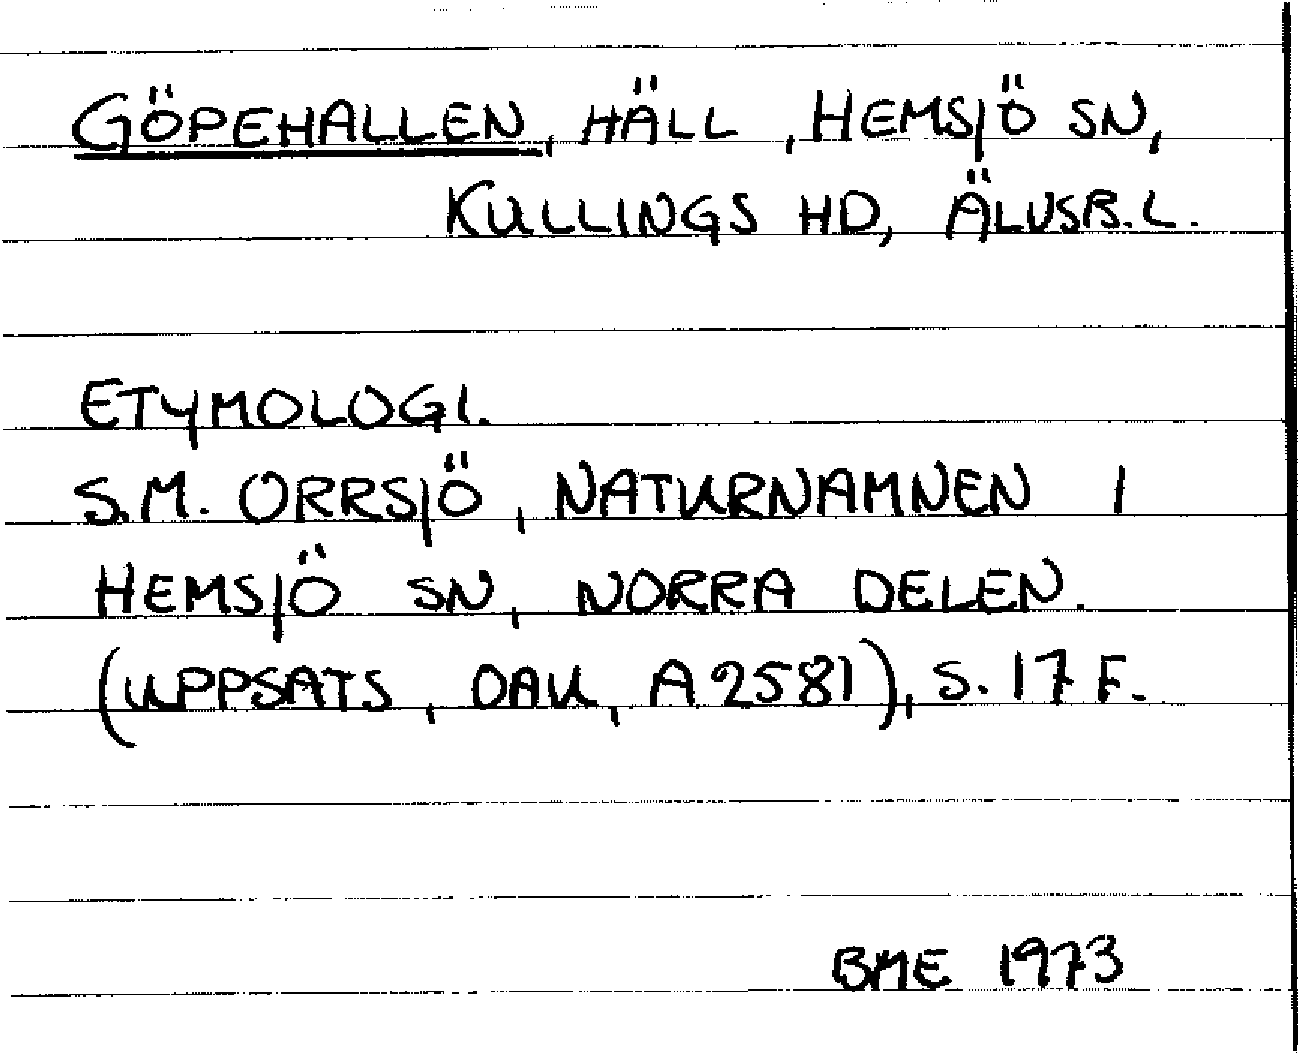 GÖPEHALLEN, HÄLL, HEMSJÖ SN,
KULLINGS HD, ÄLVSB. L.
ETYMOLOGI.
S.M. ORRSJÖ, NATURNAMNEN I
HEMSJÖ SN, NORRA DELEN.
(UPPSATS, OAU, A2581), S. 17 F.
BME 1973